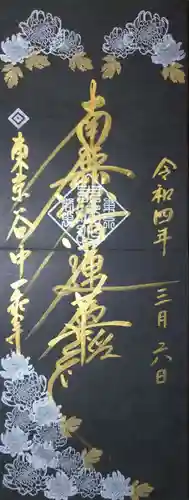 令和四年
三月六日
南無妙法蓮華経
東京谷中一乗寺